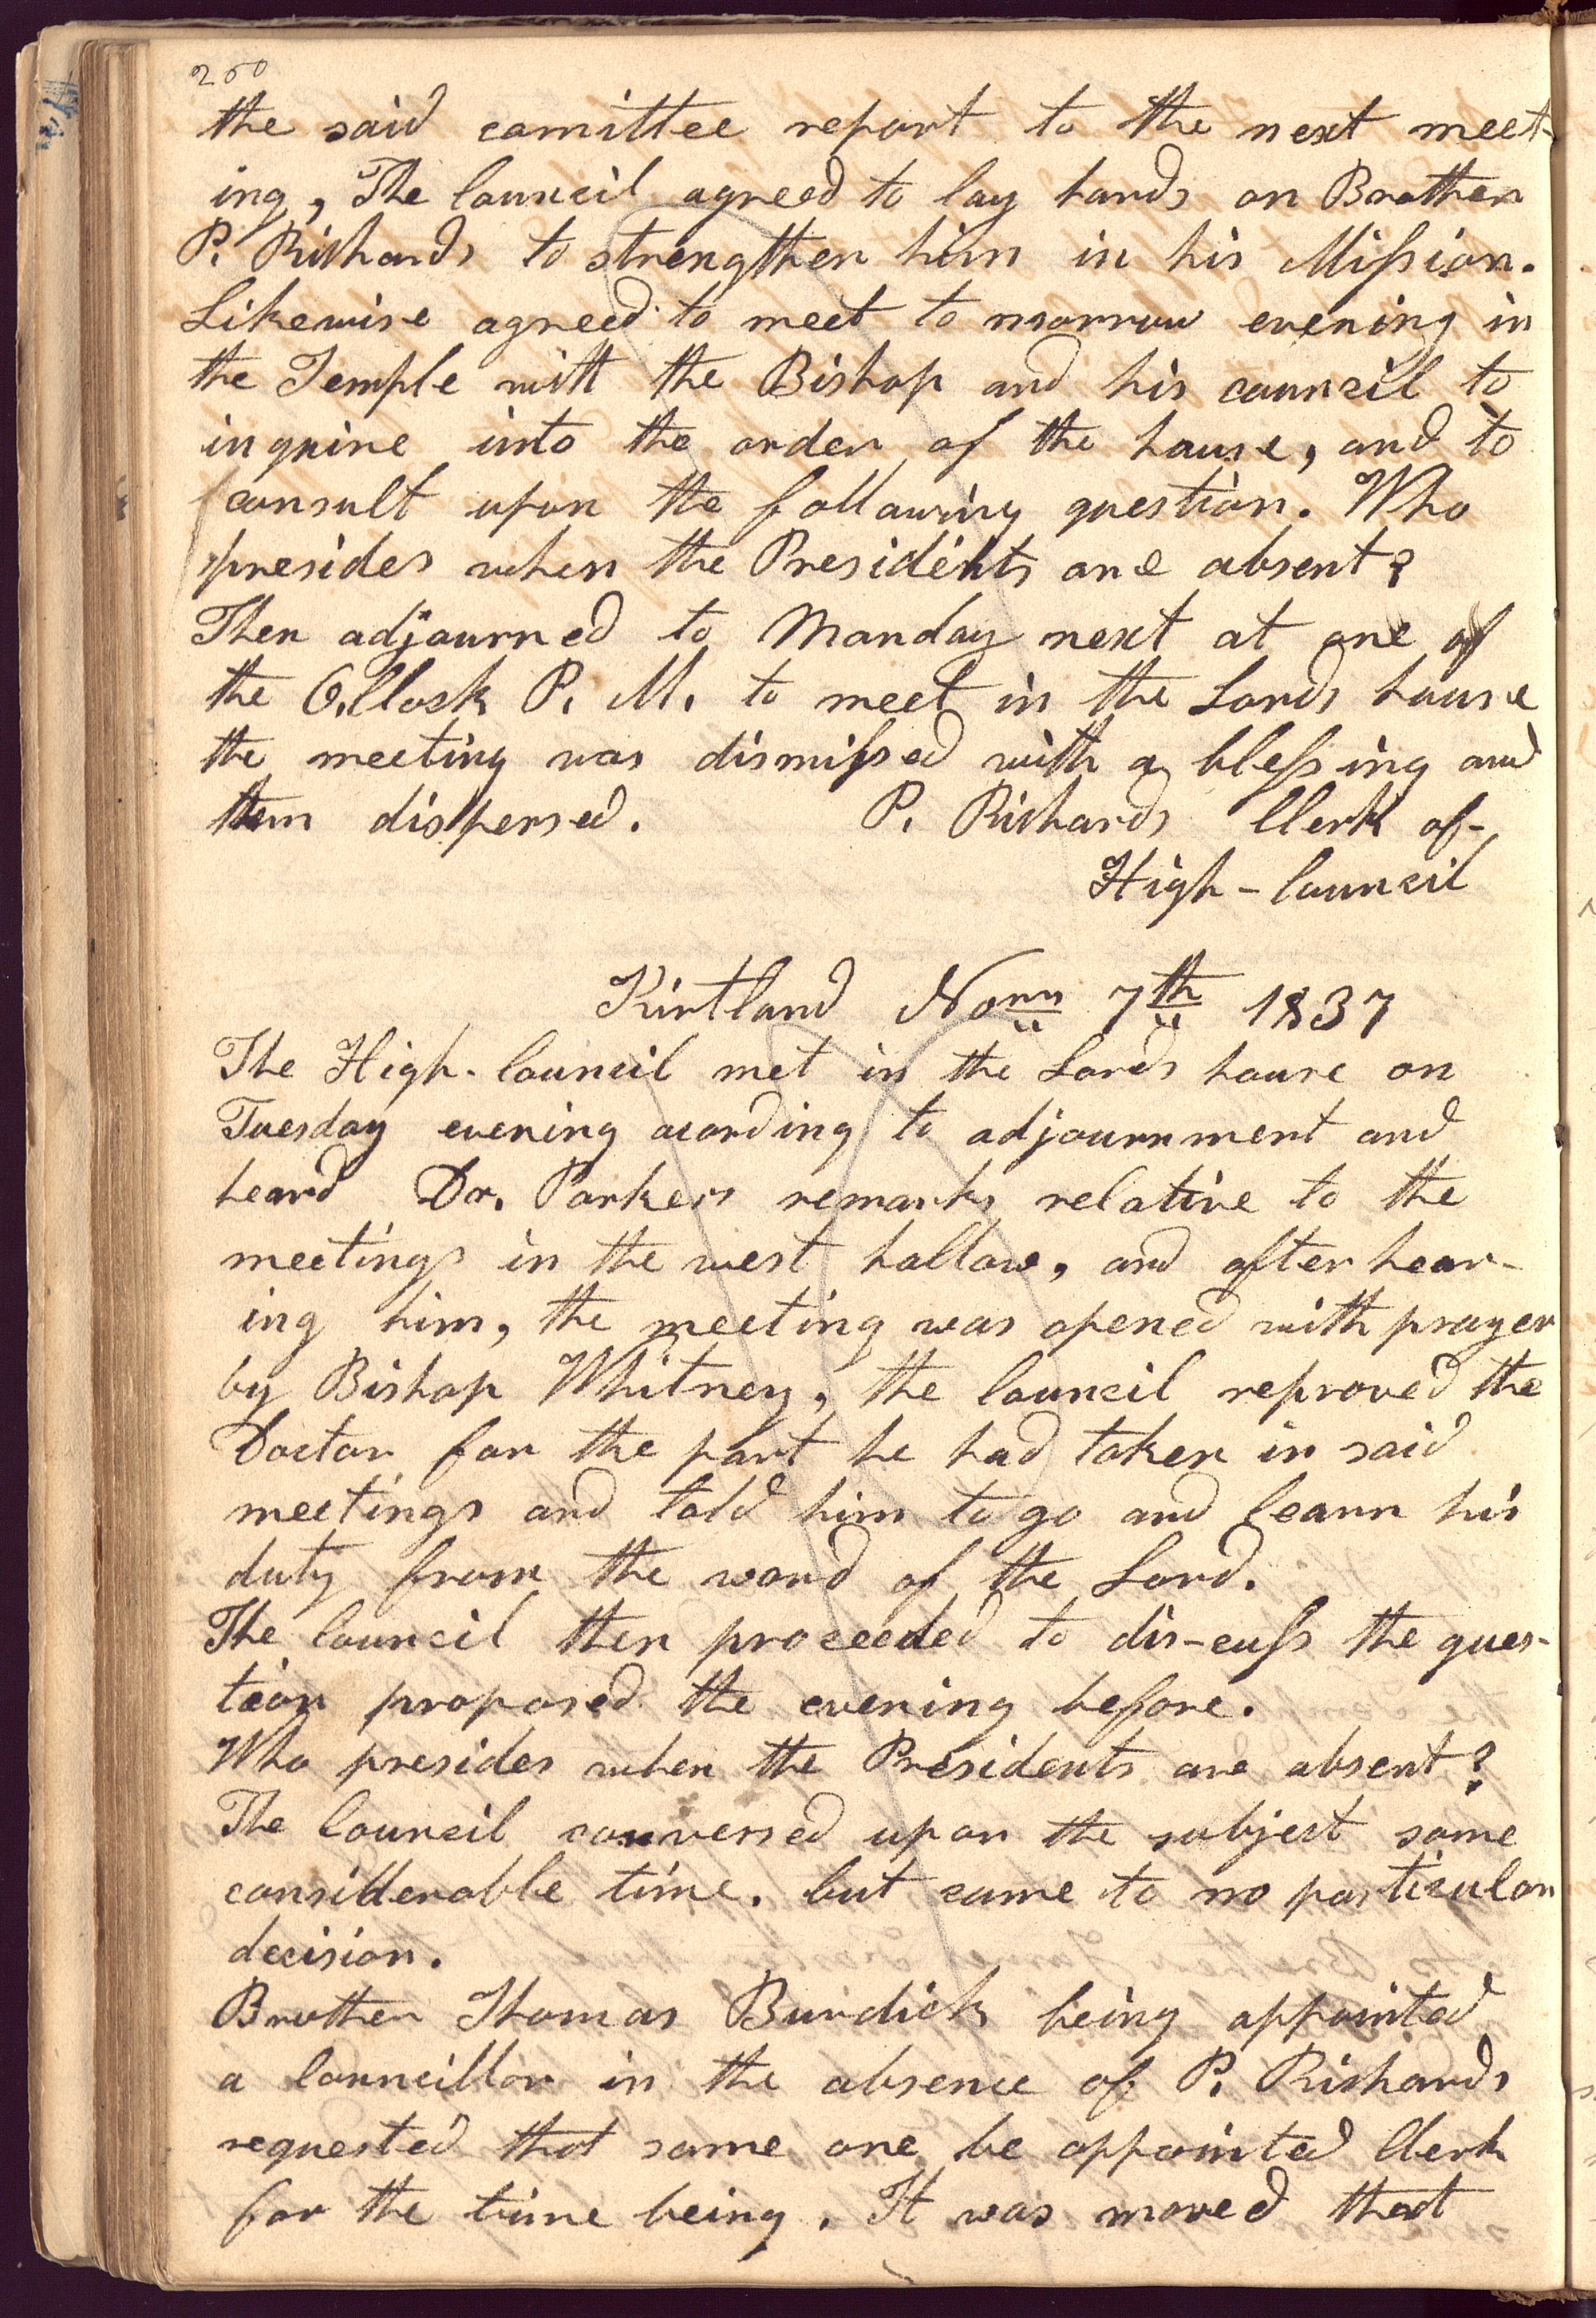 250
the said comittee report to the next meet-
ing, The Council agreed to lay hands on Brother
P. Richards to strengthen him in his Mission.
Likewise agreed to meet to morrow evening in
the Temple with the Bishop and his council to
inquire into the order of the house, and to
consult upon the following question. Who
presides when the Presidents are absent?
Then adjourned to Monday next at one of
the O,Clock P. M. to meet in the Lords house
the meeting was dismissed with a blessing and
then dispersed. P. Richards Clerk of-
High-Council
Kirtland Novr 7th 1837
The High-Council met in the Lords house on
Tuesday evening acording to adjournment and
heard Dr. Parkers remarks relative to the
meetings in the west hollow, and after hear-
ing him, the meeting was opened with prayer
by Bishop Whitney, the Council reproved the
Doctor for the part he had taken in said
meetings and told him to go and learn his
duty from the word of the Lord.
The Council then proceeded to dis-cuss the ques-
tion proposed the evening before.
Who presides when the Presidents are absent?
The Council conversed upon the subject some
considderable time. but came to no particular
decision.
Brother Thomas Burdick being appointed
a Councillor in the absence of P. Richards
requested that some one be appointed Clerk
for the time being. It was moved that